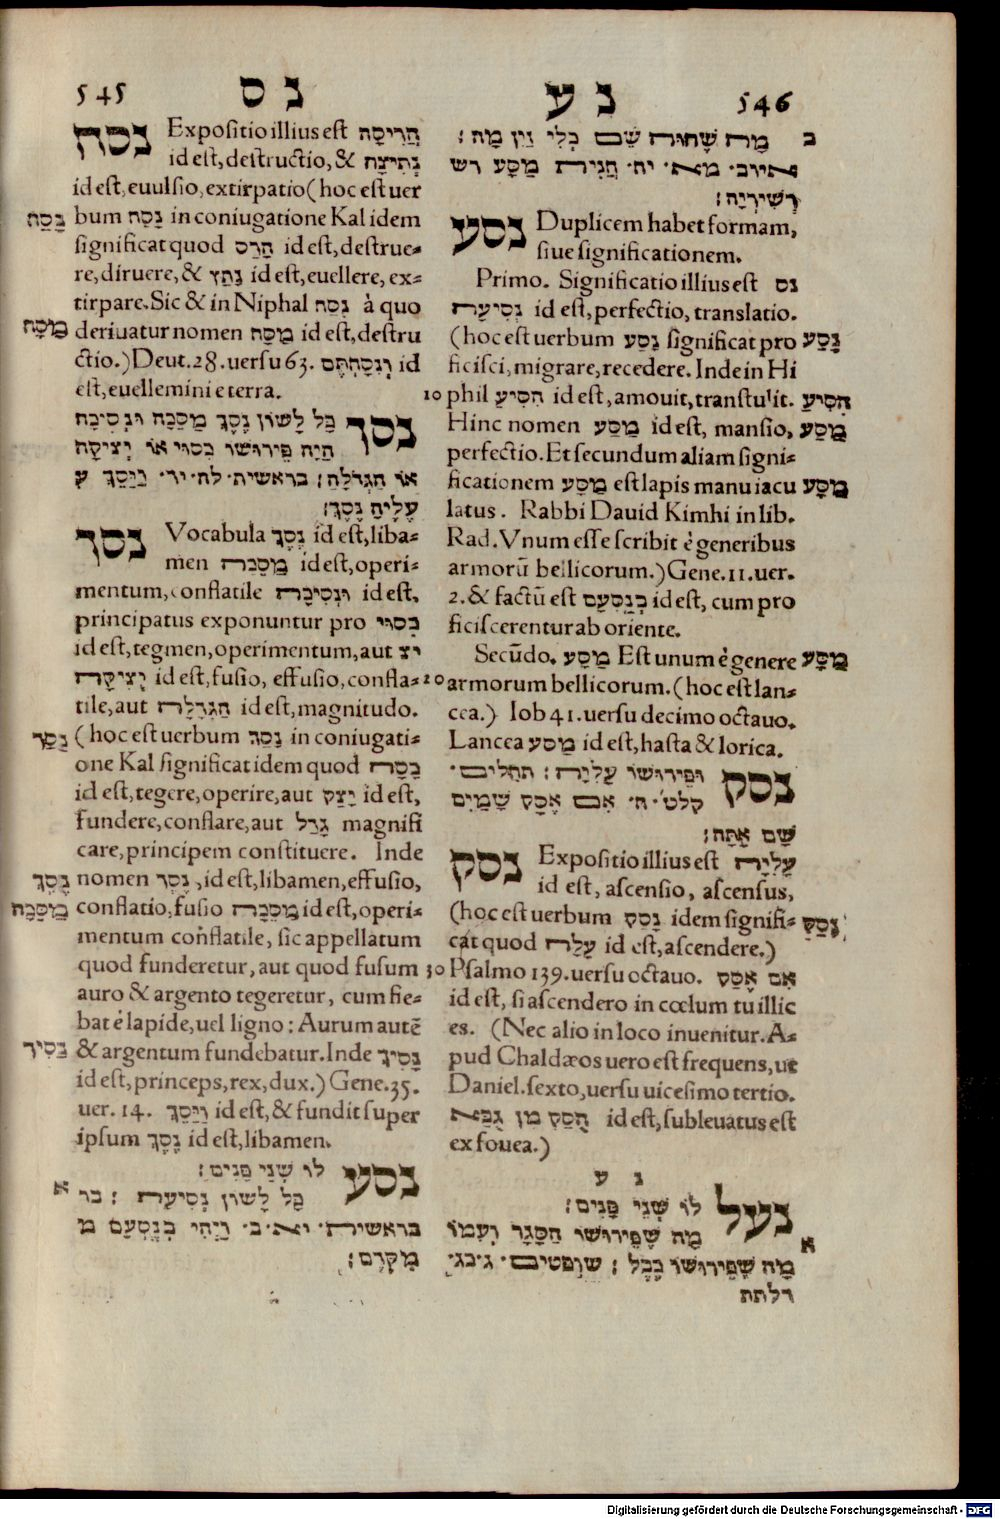 545 נ ס
נסח Expositio illius est הֲרִיסָה
id est, destructio, & נְתִיצָה
id est, euulsio, extirpatio (hoc est uer
נָסַח bum נָסַח in coniugatione Kal idem
significat quod הָרַס id est, destrue-
re, diruere, & נָתַץ id est, euellere, ex-
tirpare. Sic & in Niphal נִסַּח à quo
מַסָּח deriuatur nomen מַסָּח id est, destru
ctio.) Deut. 28. uersu 63. וְנִסַּחְתֶּם id
est, euellemini e terra.
נסך כָּל לָשׁוֹן נֶסֶךְ מַסֵּכָה וּנְסִיכָה
הָיָה פֵּירוּשׁוֹ כִּסּוּי אוֹ יְצִיקָה
אוֹ הַגְדֹּלָה׃ בראשית· לה· יד· וַיַּסֵּךְ ע
עָלֶיהָ נֶסֶךְ׃
נסך Vocabula נֶסֶךְ id est, liba-
men מַסֵּכָה id est, operi-
mentum, conflatile וּנְסִיכָה id est,
principatus exponuntur pro כִּסּוּי
id est, tegmen, operimentum, aut יצ
יְצִיקָה id est, fusio, effusio, confla-
tile, aut הַגְדֹּלָה id est, magnitudo.
נָסַךְ (hoc est uerbum נָסַךְ in coniugati-
one Kal significat idem quod כָּסָה
id est, tegere, operire, aut יָצַק id est,
fundere, conflare, aut גָּדַל magnifi
care, principem constituere. Inde
נֶסֶךְ nomen נֶסֶךְ, id est, libamen, effusio,
מַסֵּכָה conflatio, fusio מַסֵּכָה id est, operi-
mentum conflatile, sic appellatum
quod funderetur, aut quod fusum
auro & argento tegeretur, cum fie-
bat è lapide, uel ligno: Aurum autē
נָסִיךְ & argentum fundebatur. Inde נָסִיךְ
id est, princeps, rex, dux.) Gene. 35.
uer. 14. וַיַּסֵּךְ id est, & fundit super
ipsum נֶסֶךְ id est, libamen.
נסע לוֹ שְׁנֵי פָּנִים׃
א כָּל לָשׁוֹן נְסִיעָה ׃ בר
בראשית· יא· ב· וַיְהִי בְּנָסְעָם מ
מִקֶּדֶם׃
נ ע 546
ב מַה שֶּׁהוּא שֵׁם כְּלִי זַיִן מָה׃
איוב· מא· יח· חֲנִית מַסָּע וש
וְשִׁרְיָה׃
נסע Duplicem habet formam,
siue significationem.
Primo. Significatio illius est נס
נְסִיעָה id est, perfectio, translatio.
(hoc est uerbum נָסַע significat pro נָסַע
ficisci, migrare, recedere. Inde in Hi
10 phil הִסִּיעַ id est, amouit, transtulit. הִסִּיעַ
Hinc nomen מַסַּע id est, mansio, מַסַּע
perfectio. Et secundum aliam signi-
ficationem מַסָּע est lapis manu iacu מַסָּע
latus. Rabbi Dauid Kimhi in lib.
Rad. Vnum esse scribit è generibus
armorū bellicorum.) Gene. 11. uer.
2. & factū est בְּנָסְעָם id est, cum pro
ficiscerentur ab oriente.
Secūdo. מַסָּע Est unum è genere מַסָּע
20 armorum bellicorum. (hoc est lan-
cea.) Iob 41. uersu decimo octauo.
Lancea מַסָּע id est, hasta & lorica.
נסק וּפֵירוּשׁוֹ עֲלִיָּה׃ תהלים·
קלט· ח· אִם אֶסַּק שָׁמַיִם
שָׁם אָתָּה׃
נסק Expositio illius est עֲלִיָּה
id est, ascensio, ascensus,
(hoc est uerbum נָסַק idem signifi- נָסַק
cat quod עָלָה id est, ascendere.)
30 Psalmo 139. uersu octauo. אִם אֶסַּק
id est, si ascendero in cœlum tu illic
es. (Nec alio in loco inuenitur. A-
pud Chaldæos uero est frequens, ut
Daniel. sexto, uersu uicesimo tertio.
הֻסַּק מִן גֻּבָּא id est, subleuatus est
ex fouea.)
נ ע
נעל לוֹ שְׁנֵי פָּנִים׃
א מַה שֶּׁפֵּירוּשׁוֹ הַסָּגָר וְעִמּוֹ
מַה שֶּׁפֵּירוּשׁוֹ כֶּבֶל׃ שופטים· ג·כג·
דלתת
Digitalisierung gefördert durch die Deutsche Forschungsgemeinschaft - DFG